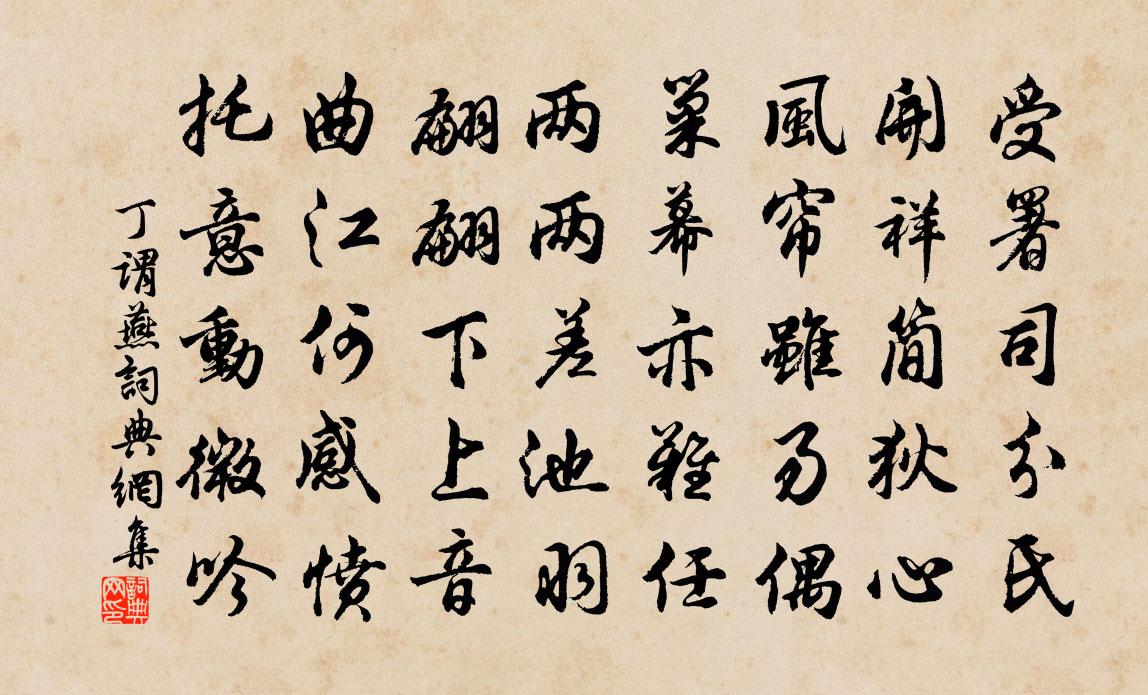 受署司分氏
開祥简狄心
風帘雖易偶
巢幕亦難任
两两差池羽
翩翩下上音
曲江何感憤
托意動微吟
丁謂燕詞典網集
詞典网印